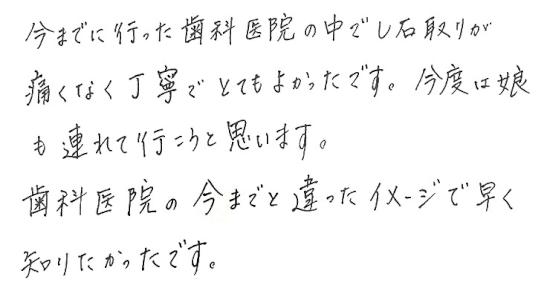 今までに行った歯科医院の中でし石取りが
痛くなく丁寧でとてもよかったです。今度は娘
も連れて行こうと思います。
歯科医院の今までと違ったイメージで早く
知りたかったです。